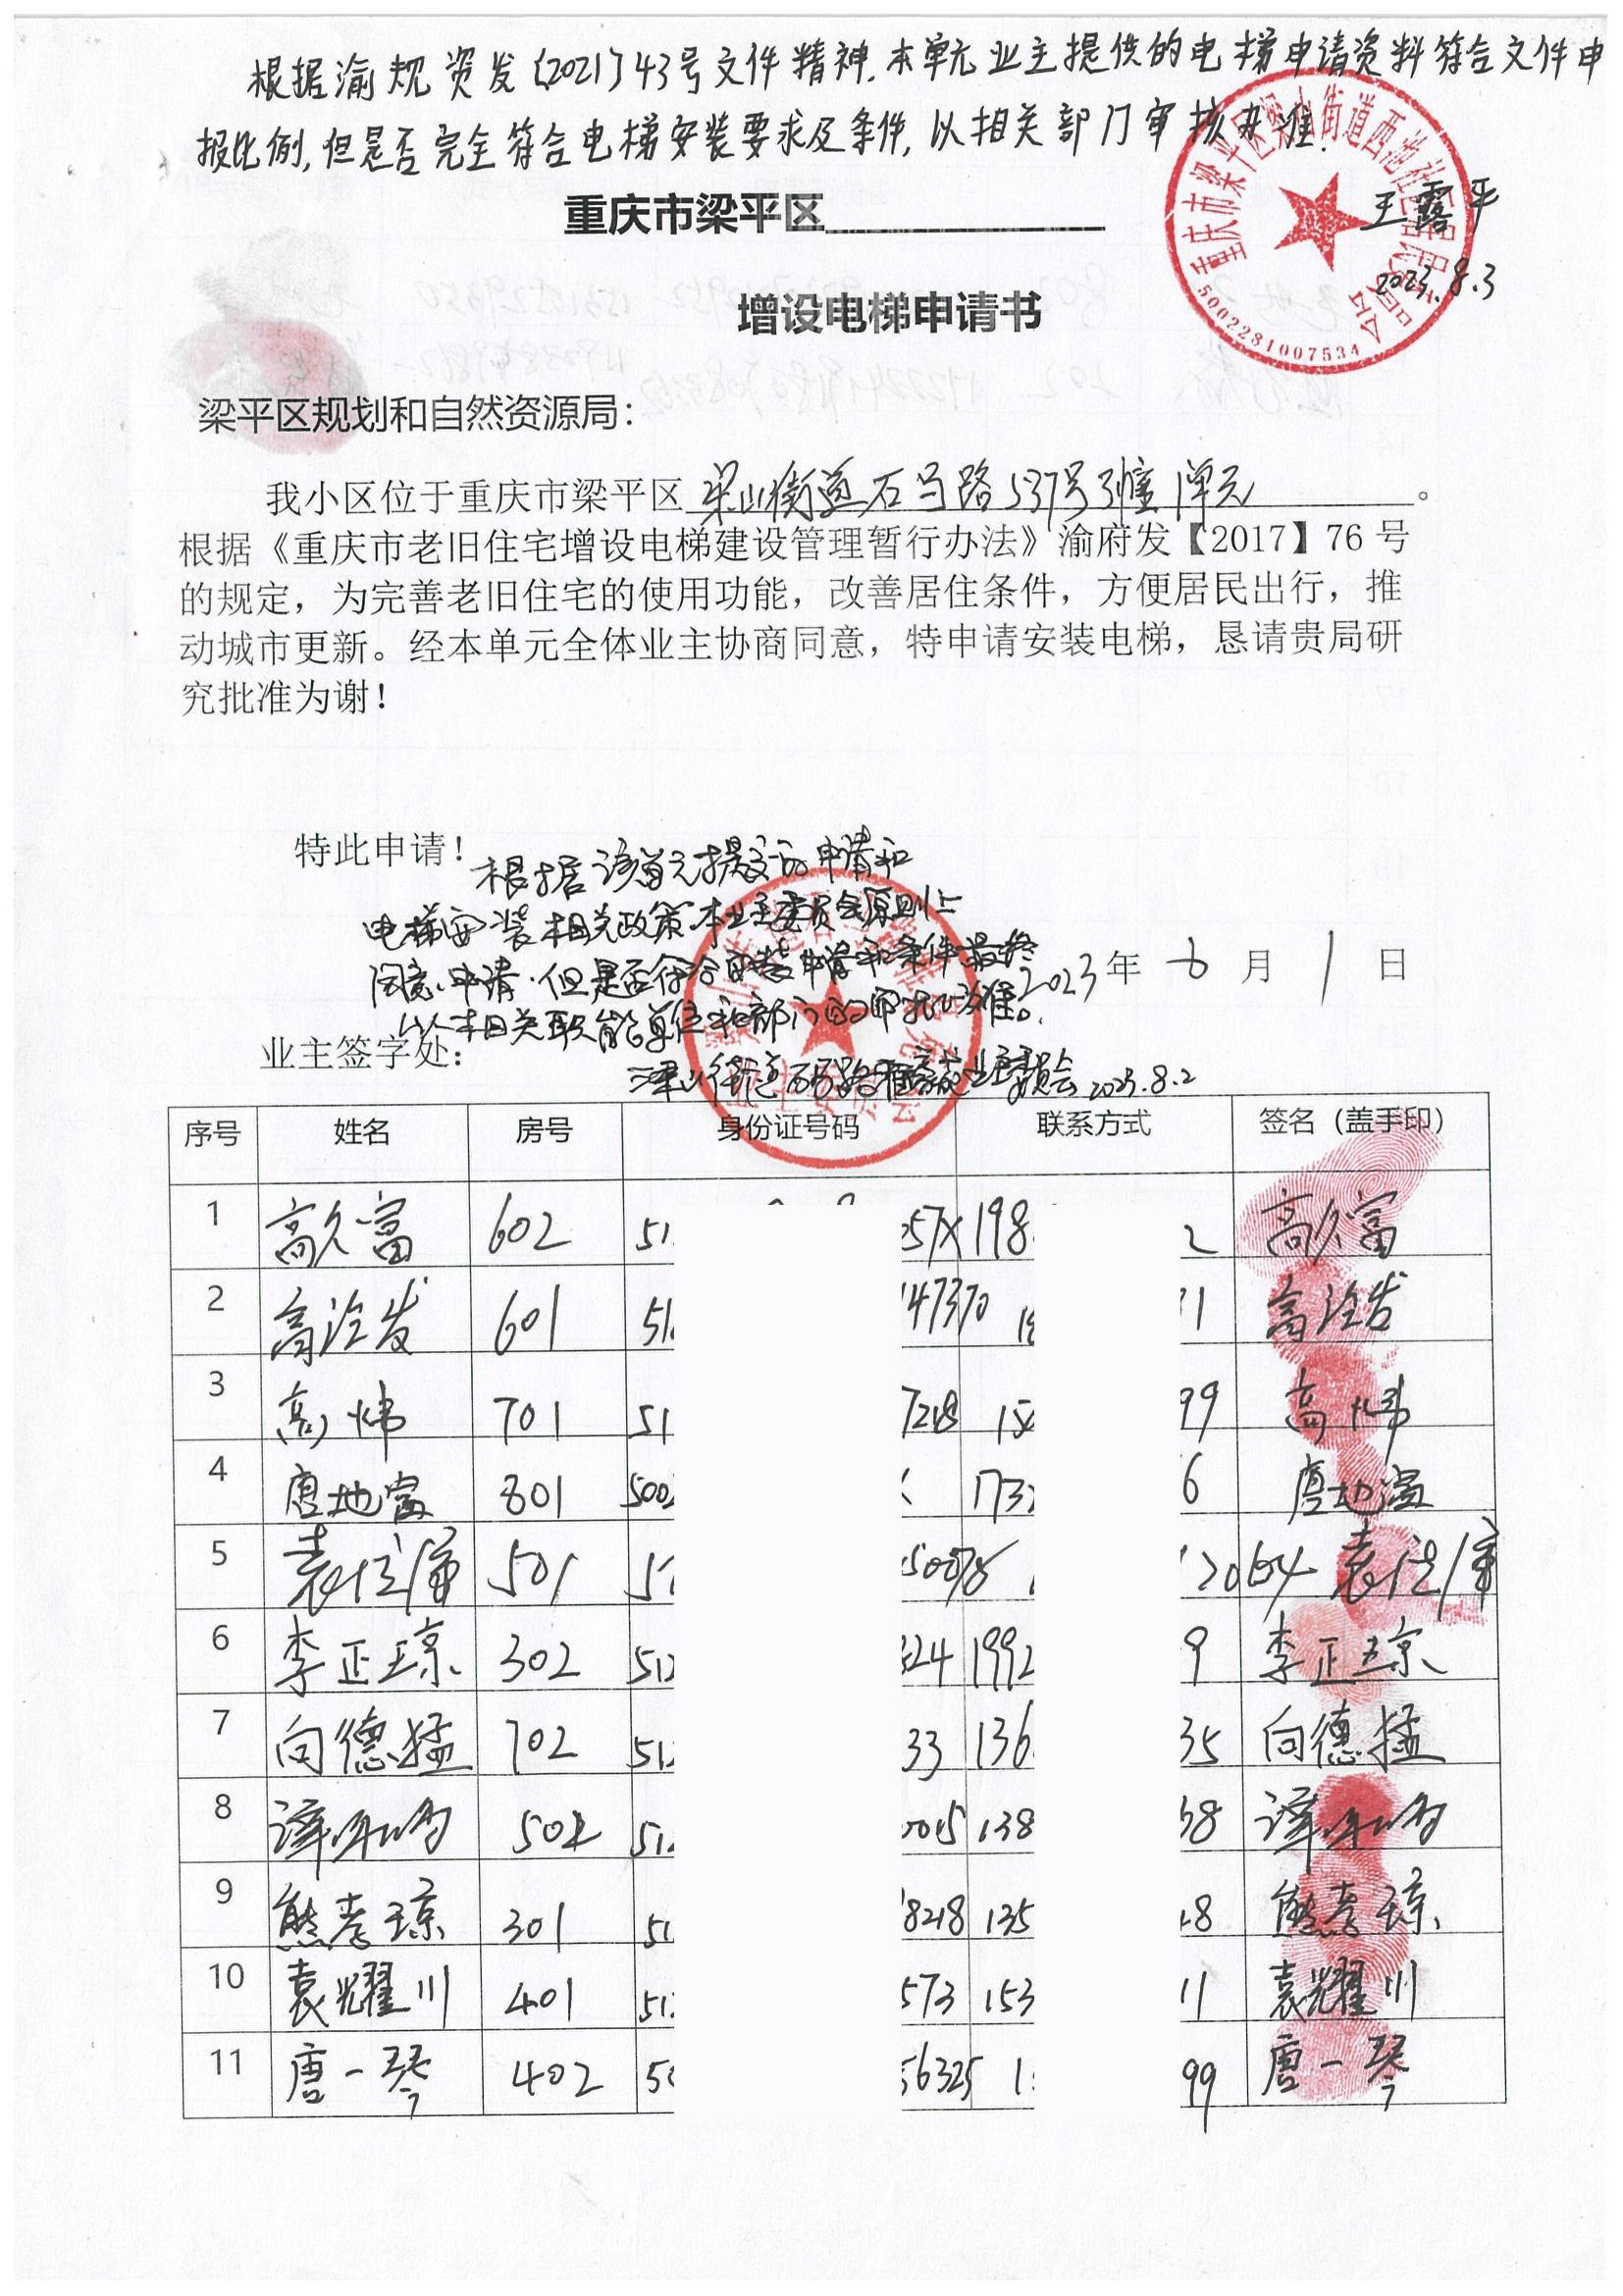 根据渝规资发〔2021〕43号文件精神,本单元业主提供的电梯申请资料符合文件申
报比例,但是否完全符合电梯安装要求及条件,以相关部门审核为准.
王露平
2023.8.3
重庆市梁平区梁山街道西池社区居民委员会
5002281007534
重庆市梁平区
增设电梯申请书
梁平区规划和自然资源局：
我小区位于重庆市梁平区梁山街道石马路537号3幢1单元。
根据《重庆市老旧住宅增设电梯建设管理暂行办法》渝府发【2017】76 号
的规定，为完善老旧住宅的使用功能，改善居住条件，方便居民出行，推
动城市更新。经本单元全体业主协商同意，特申请安装电梯，恳请贵局研
究批准为谢！
特此申请！
根据该单元提交的申请和
电梯安装相关政策.本业主委员会原则上
同意申请.但是否符合安装申请和条件最终
以相关职能单位和部门的审批为准。
2023年6月1日
业主签字处：
梁山街道石马路 业主委员会2023.8.2
序号 姓名 房号 身份证号码 联系方式 签名（盖手印）
1 高久富 602 51 057X 198 2 高久富
2 高 发 601 51 47370 1 高 发
3 高炜 701 51 7218 15 99 高炜
4 唐地富 801 500 173 6 唐地富
5 袁 501 51 2064 袁
6 李正琼 302 512 324 1992 9 李正琼
7 向德猛 702 512 33 136 35 向德猛
8 谭 502 512 0015 138 38 谭
9 熊孝琼 301 51 8218 135 8 熊孝琼
10 袁耀川 401 512 573 153 11 袁耀川
11 唐一琴 402 5 56325 1 99 唐一琴